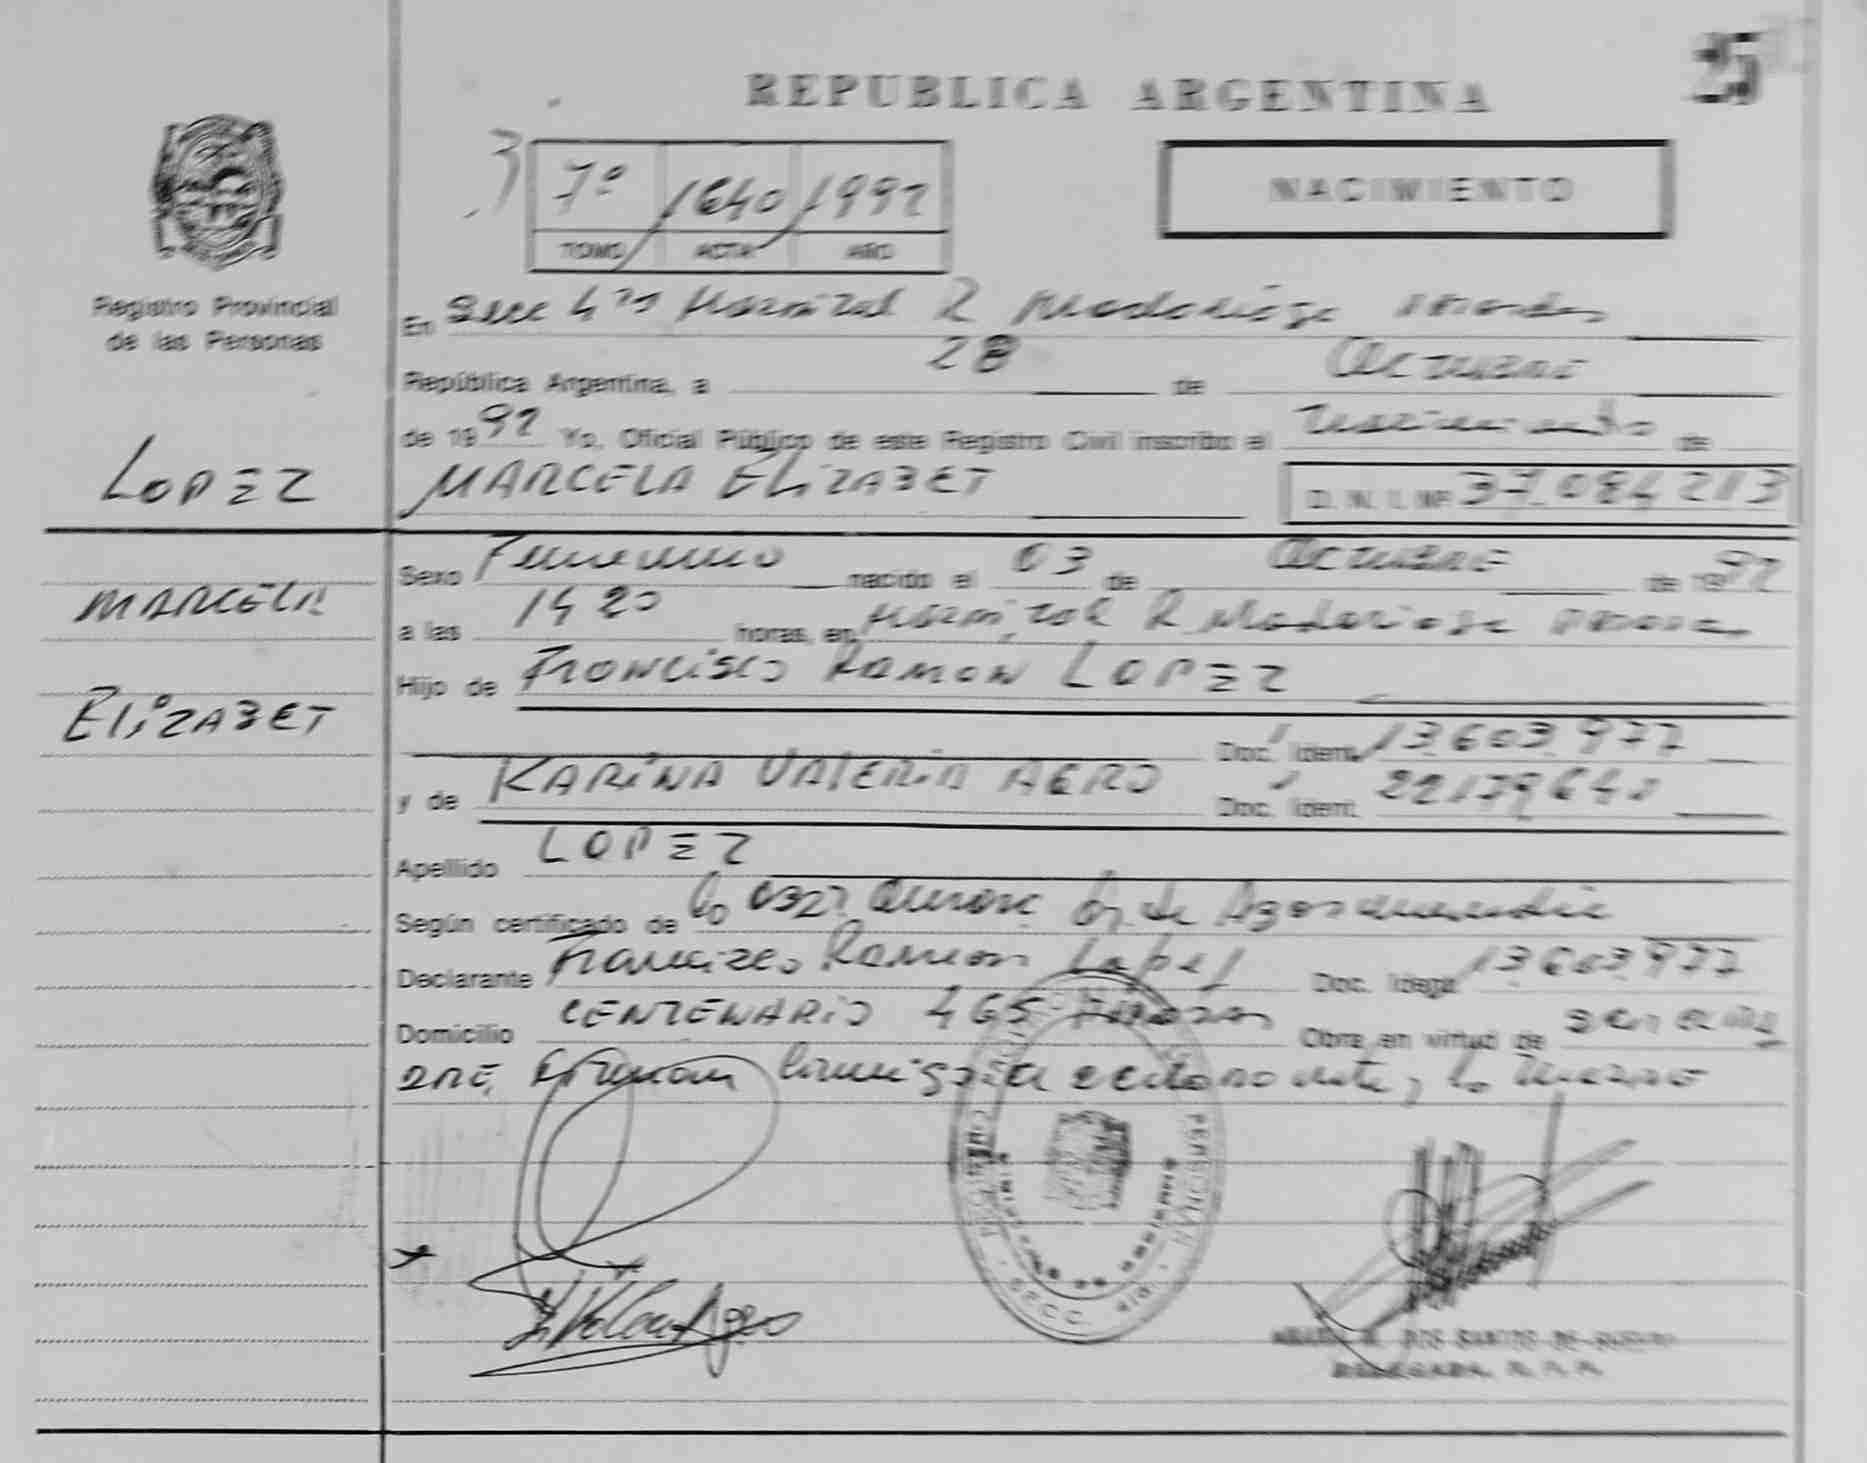 25
REPUBLICA ARGENTINA
3
7º 1640 1992
TOMO ACTA AÑO
NACIMIENTO
Registro Provincial
de las Personas
En Secc Hospital R Madariaga
República Argentina, a 28 de Octubre
de 1992 Yo, Oficial Público de este Registro Civil inscribo el nacimiento de
LOPEZ
MARCELA ELIZABET D. N. I. Nº 37.084 213
Sexo Femenino nacido el 03 de Octubre de 1992
MARCELA
a las 14 20 horas, en Hospital R Madariaga
Hijo de Francisco Ramon LOPEZ
ELIZABET
Doc. Ident. 13.603.977
y de KARINA VALERIA AGRO Doc. Ident. 22179640
Apellido LOPEZ
Según certificado de la
Declarante Francisco Ramon Lopez Doc. Ident. 13.603.977
Domicilio CENTENARIO 465 Obra en virtud de
la madre
SECC.
DOS SANTOS DE
DELEGADA R. P. P.